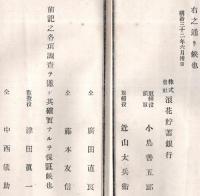 右之通ニ候也
明治三十二年六月卅日
株式會社 浪花貯蓄銀行
取締役頭取 小島善五郎
取締役 近山太兵衛
仝 廣田直良
仝 藤本友信
前記之各項調査ヲ遂ケ其確實ナルヲ保証候也
監査役 津田眞一
仝 中西儀助